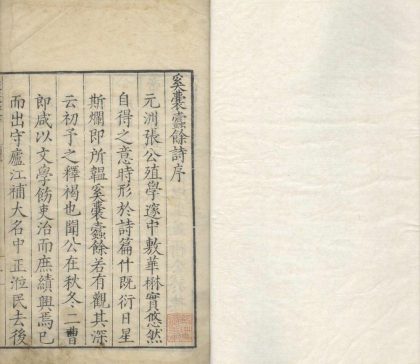 奚囊蠹餘詩序
元洲張公殖學邃中敷華楙實悠然
自得之意時形於詩篇什既衍日星
斯爛即所韞奚囊蠹餘若有觀其深
云初予之釋褐也聞公在秋冬二曹
即咸以文學飭吏治而庶績興焉已
而出守廬江補大名中正涖民去後